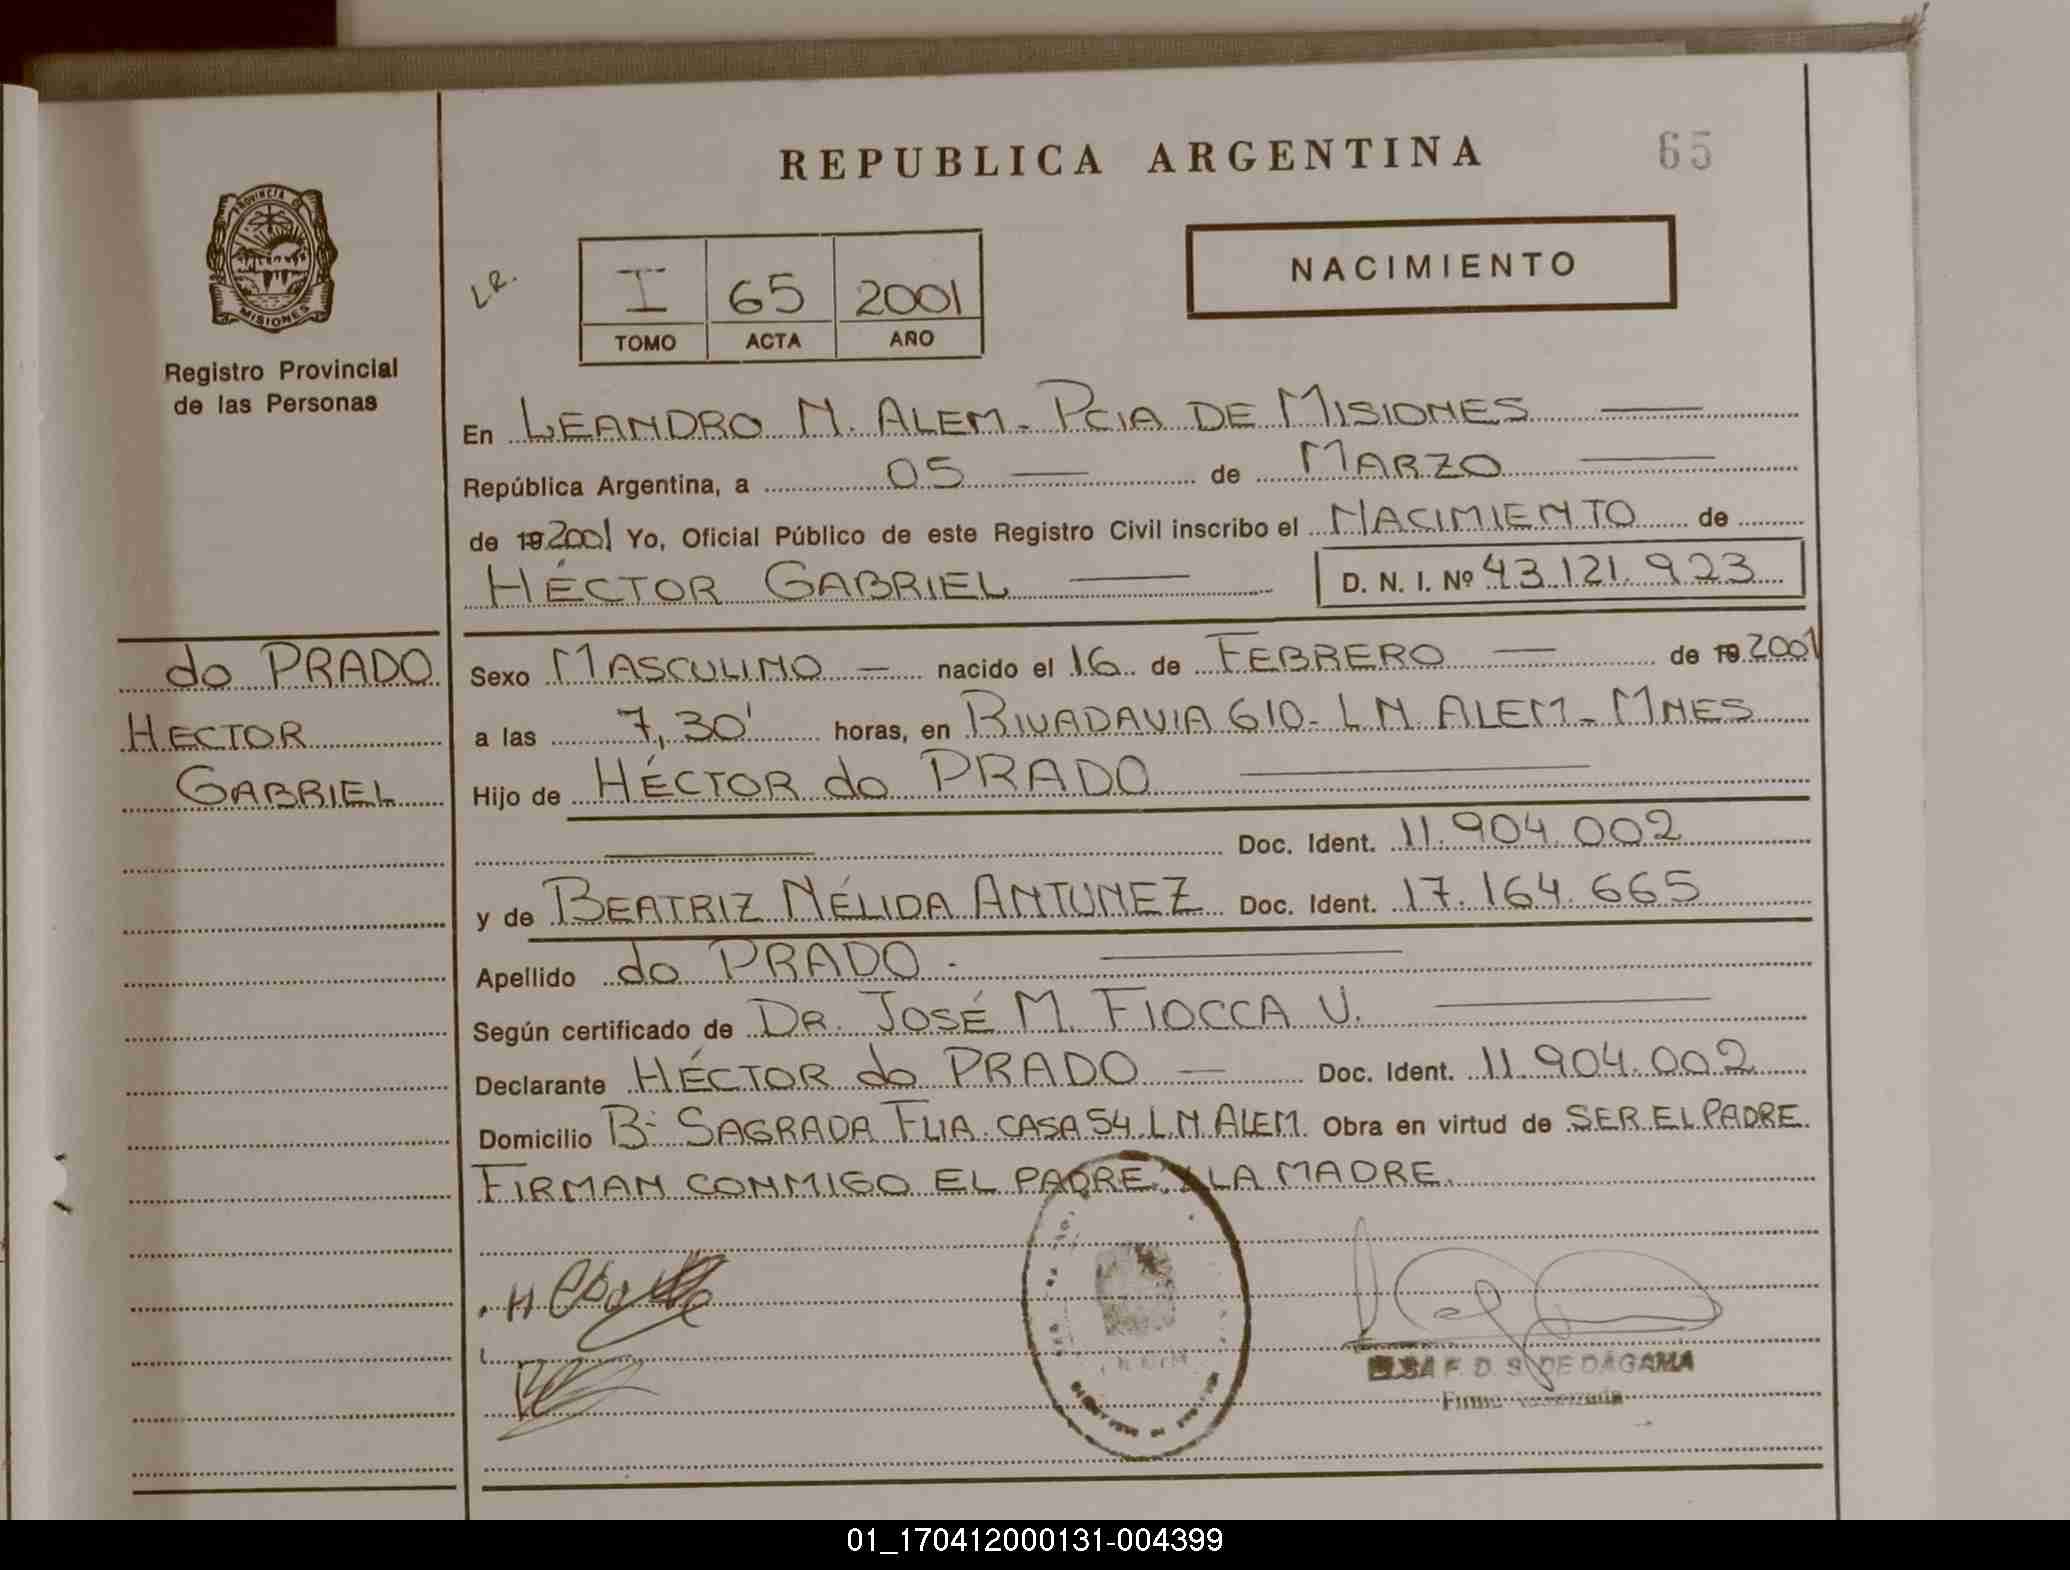 REPUBLICA ARGENTINA
65
PROVINCIA DE
MISIONES
Registro Provincial
de las Personas
LR.
I 65 2001
TOMO ACTA AÑO
NACIMIENTO
En LEANDRO N. ALEM - PCIA DE MISIONES
República Argentina, a 05 de MARZO
de 192001 Yo, Oficial Público de este Registro Civil inscribo el NACIMIENTO de
HÉCTOR GABRIEL D. N. I. Nº 43.121.923
do PRADO
HECTOR
GABRIEL
Sexo MASCULINO nacido el 16 de FEBRERO de 192001
a las 7,30' horas, en RIVADAVIA 610 - L N ALEM - MNES
Hijo de HÉCTOR do PRADO
Doc. Ident. 11.904.002
y de BEATRIZ NÉLIDA ANTUNEZ Doc. Ident. 17.164.665
Apellido do PRADO -
Según certificado de DR. JOSÉ M. FIOCCA V.
Declarante HÉCTOR do PRADO Doc. Ident. 11.904.002
Domicilio Bº SAGRADA FLIA. CASA 54. L.N ALEM. Obra en virtud de SER EL PADRE.
FIRMAN CONMIGO EL PADRE Y LA MADRE.
F. D. S. DE DAGAMA
01_170412000131-004399